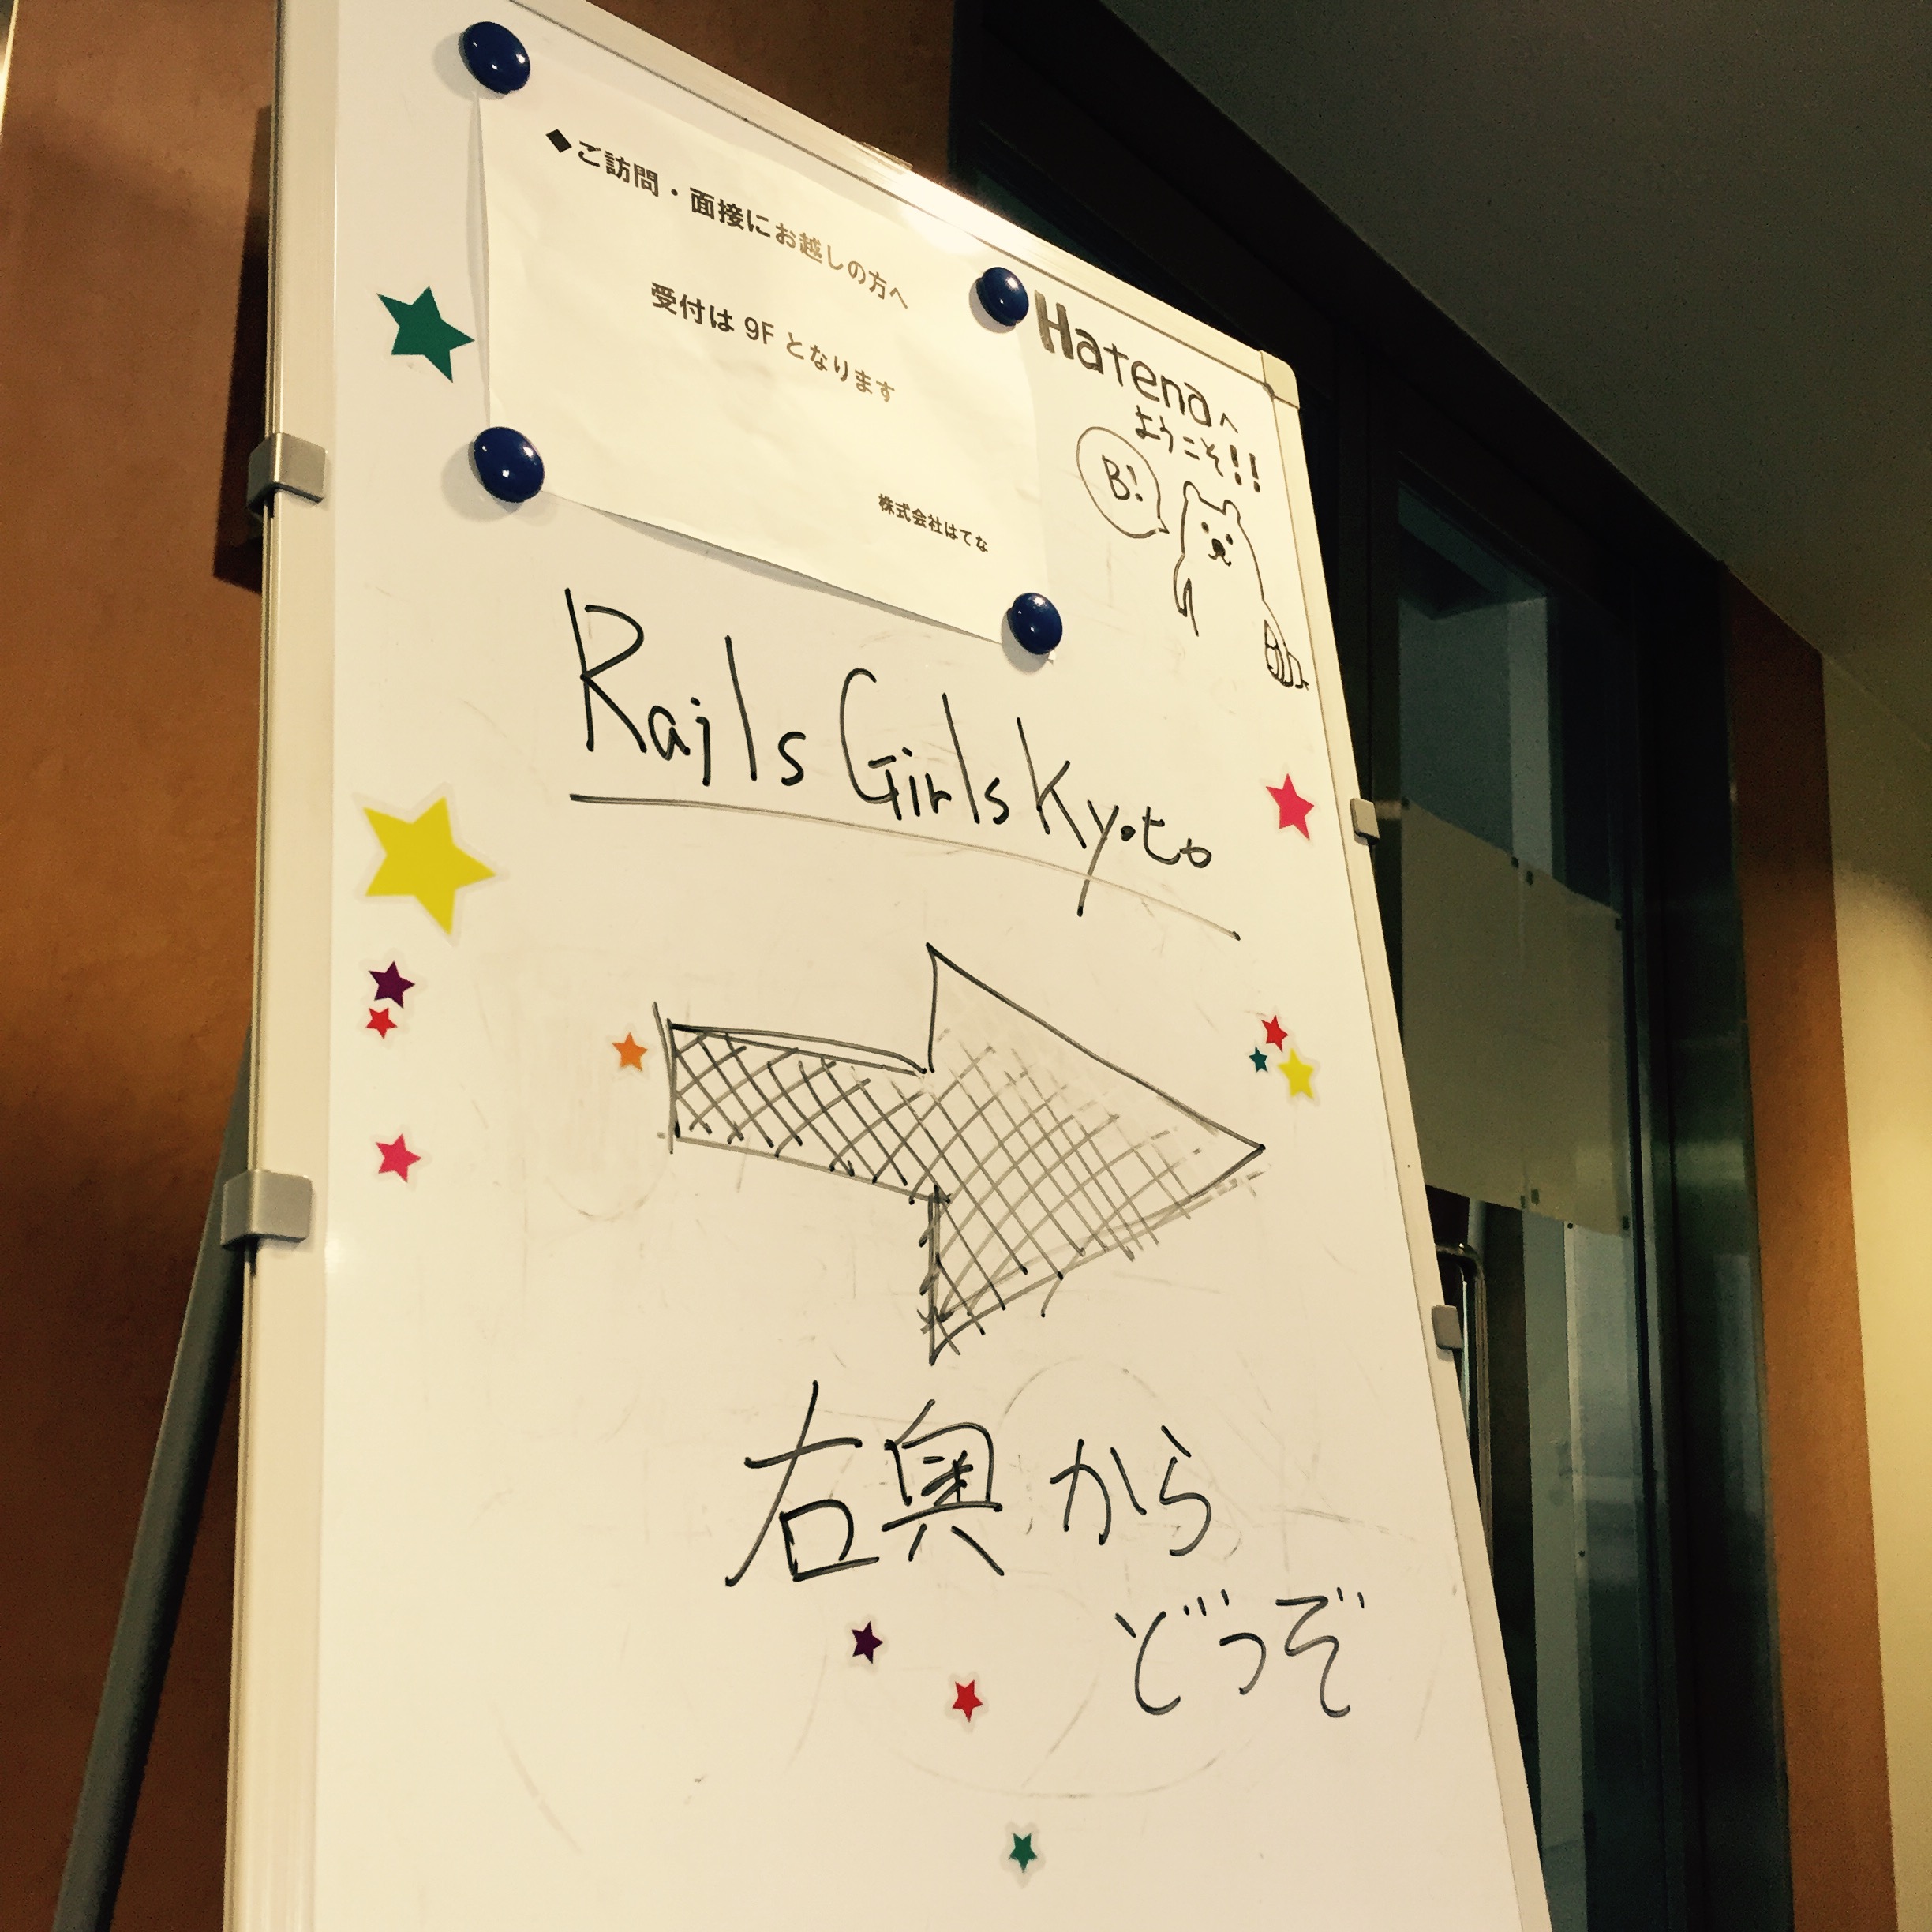 ◆ご訪問・面接にお越しの方へ
受付は 9F となります
株式会社はてな
Hatenaへ
ようこそ!!
B!
Rails Girls Kyoto
右奥から
どうぞ